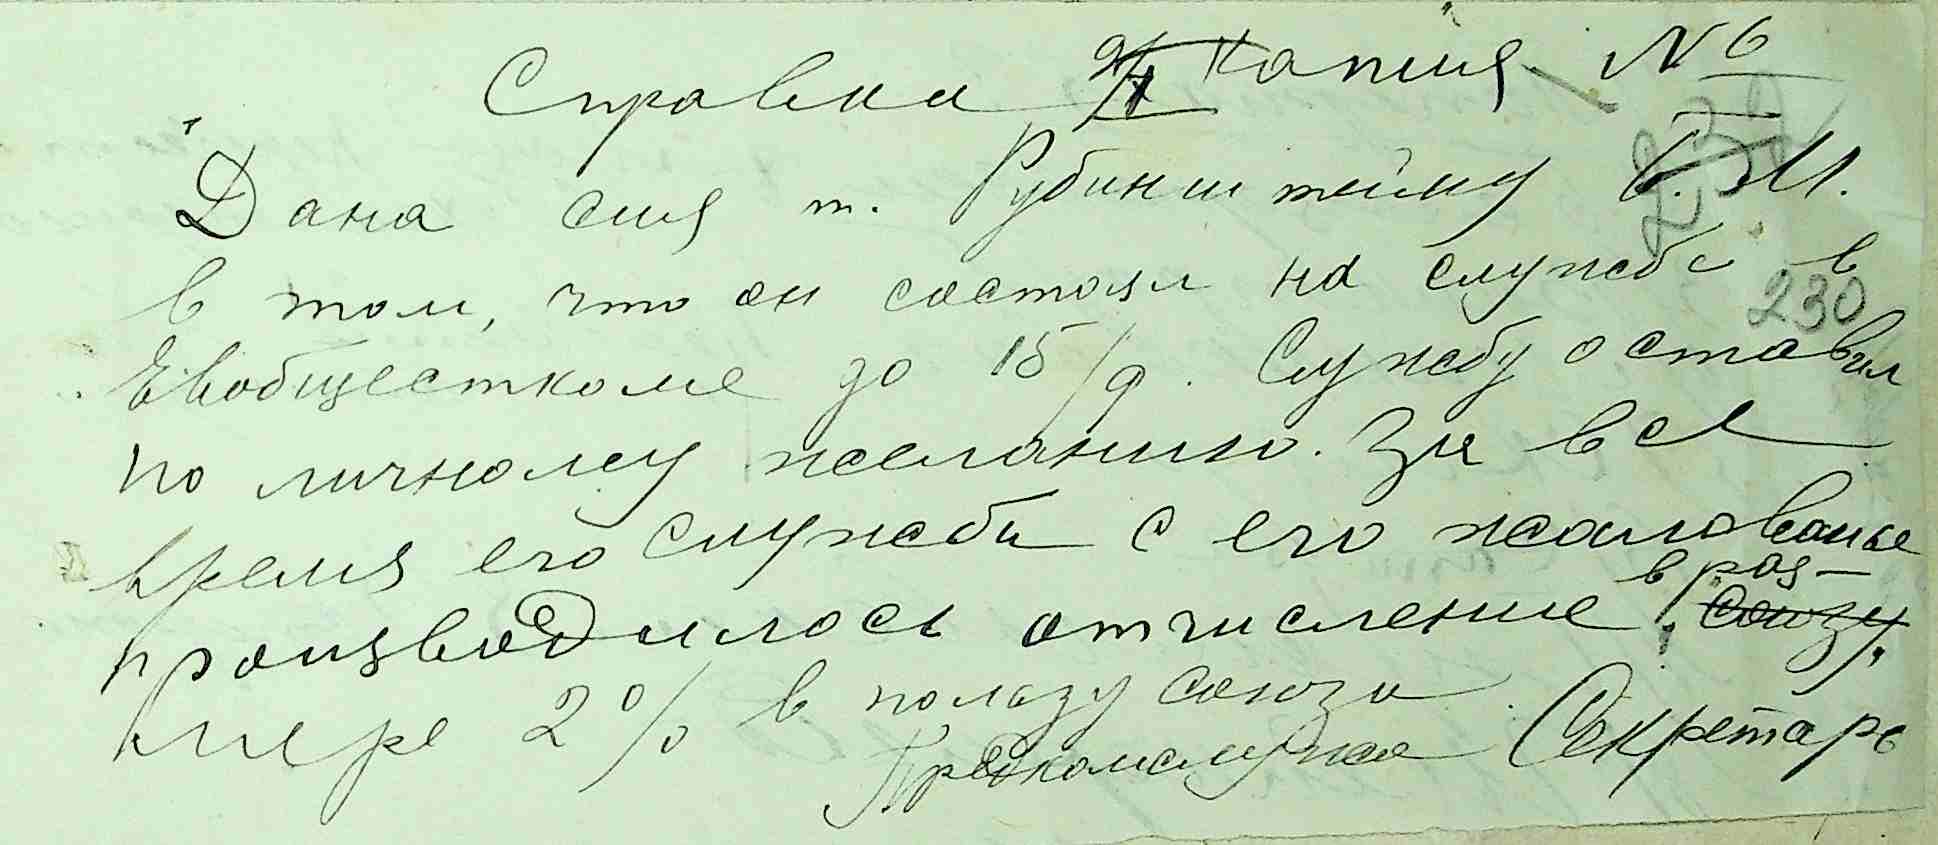 Справка Копия № 6
Дана сия т. Рубинштейну Б. М.
в том, что он состоял на службе в
230
Евобщесткоме до 15/9. Службу оставил
по личному желанию. За все
время его службы с его жалованье
производилось отчисление в раз-
союзу,
мере 2% в пользу союза
Предкомслужа Секретарь